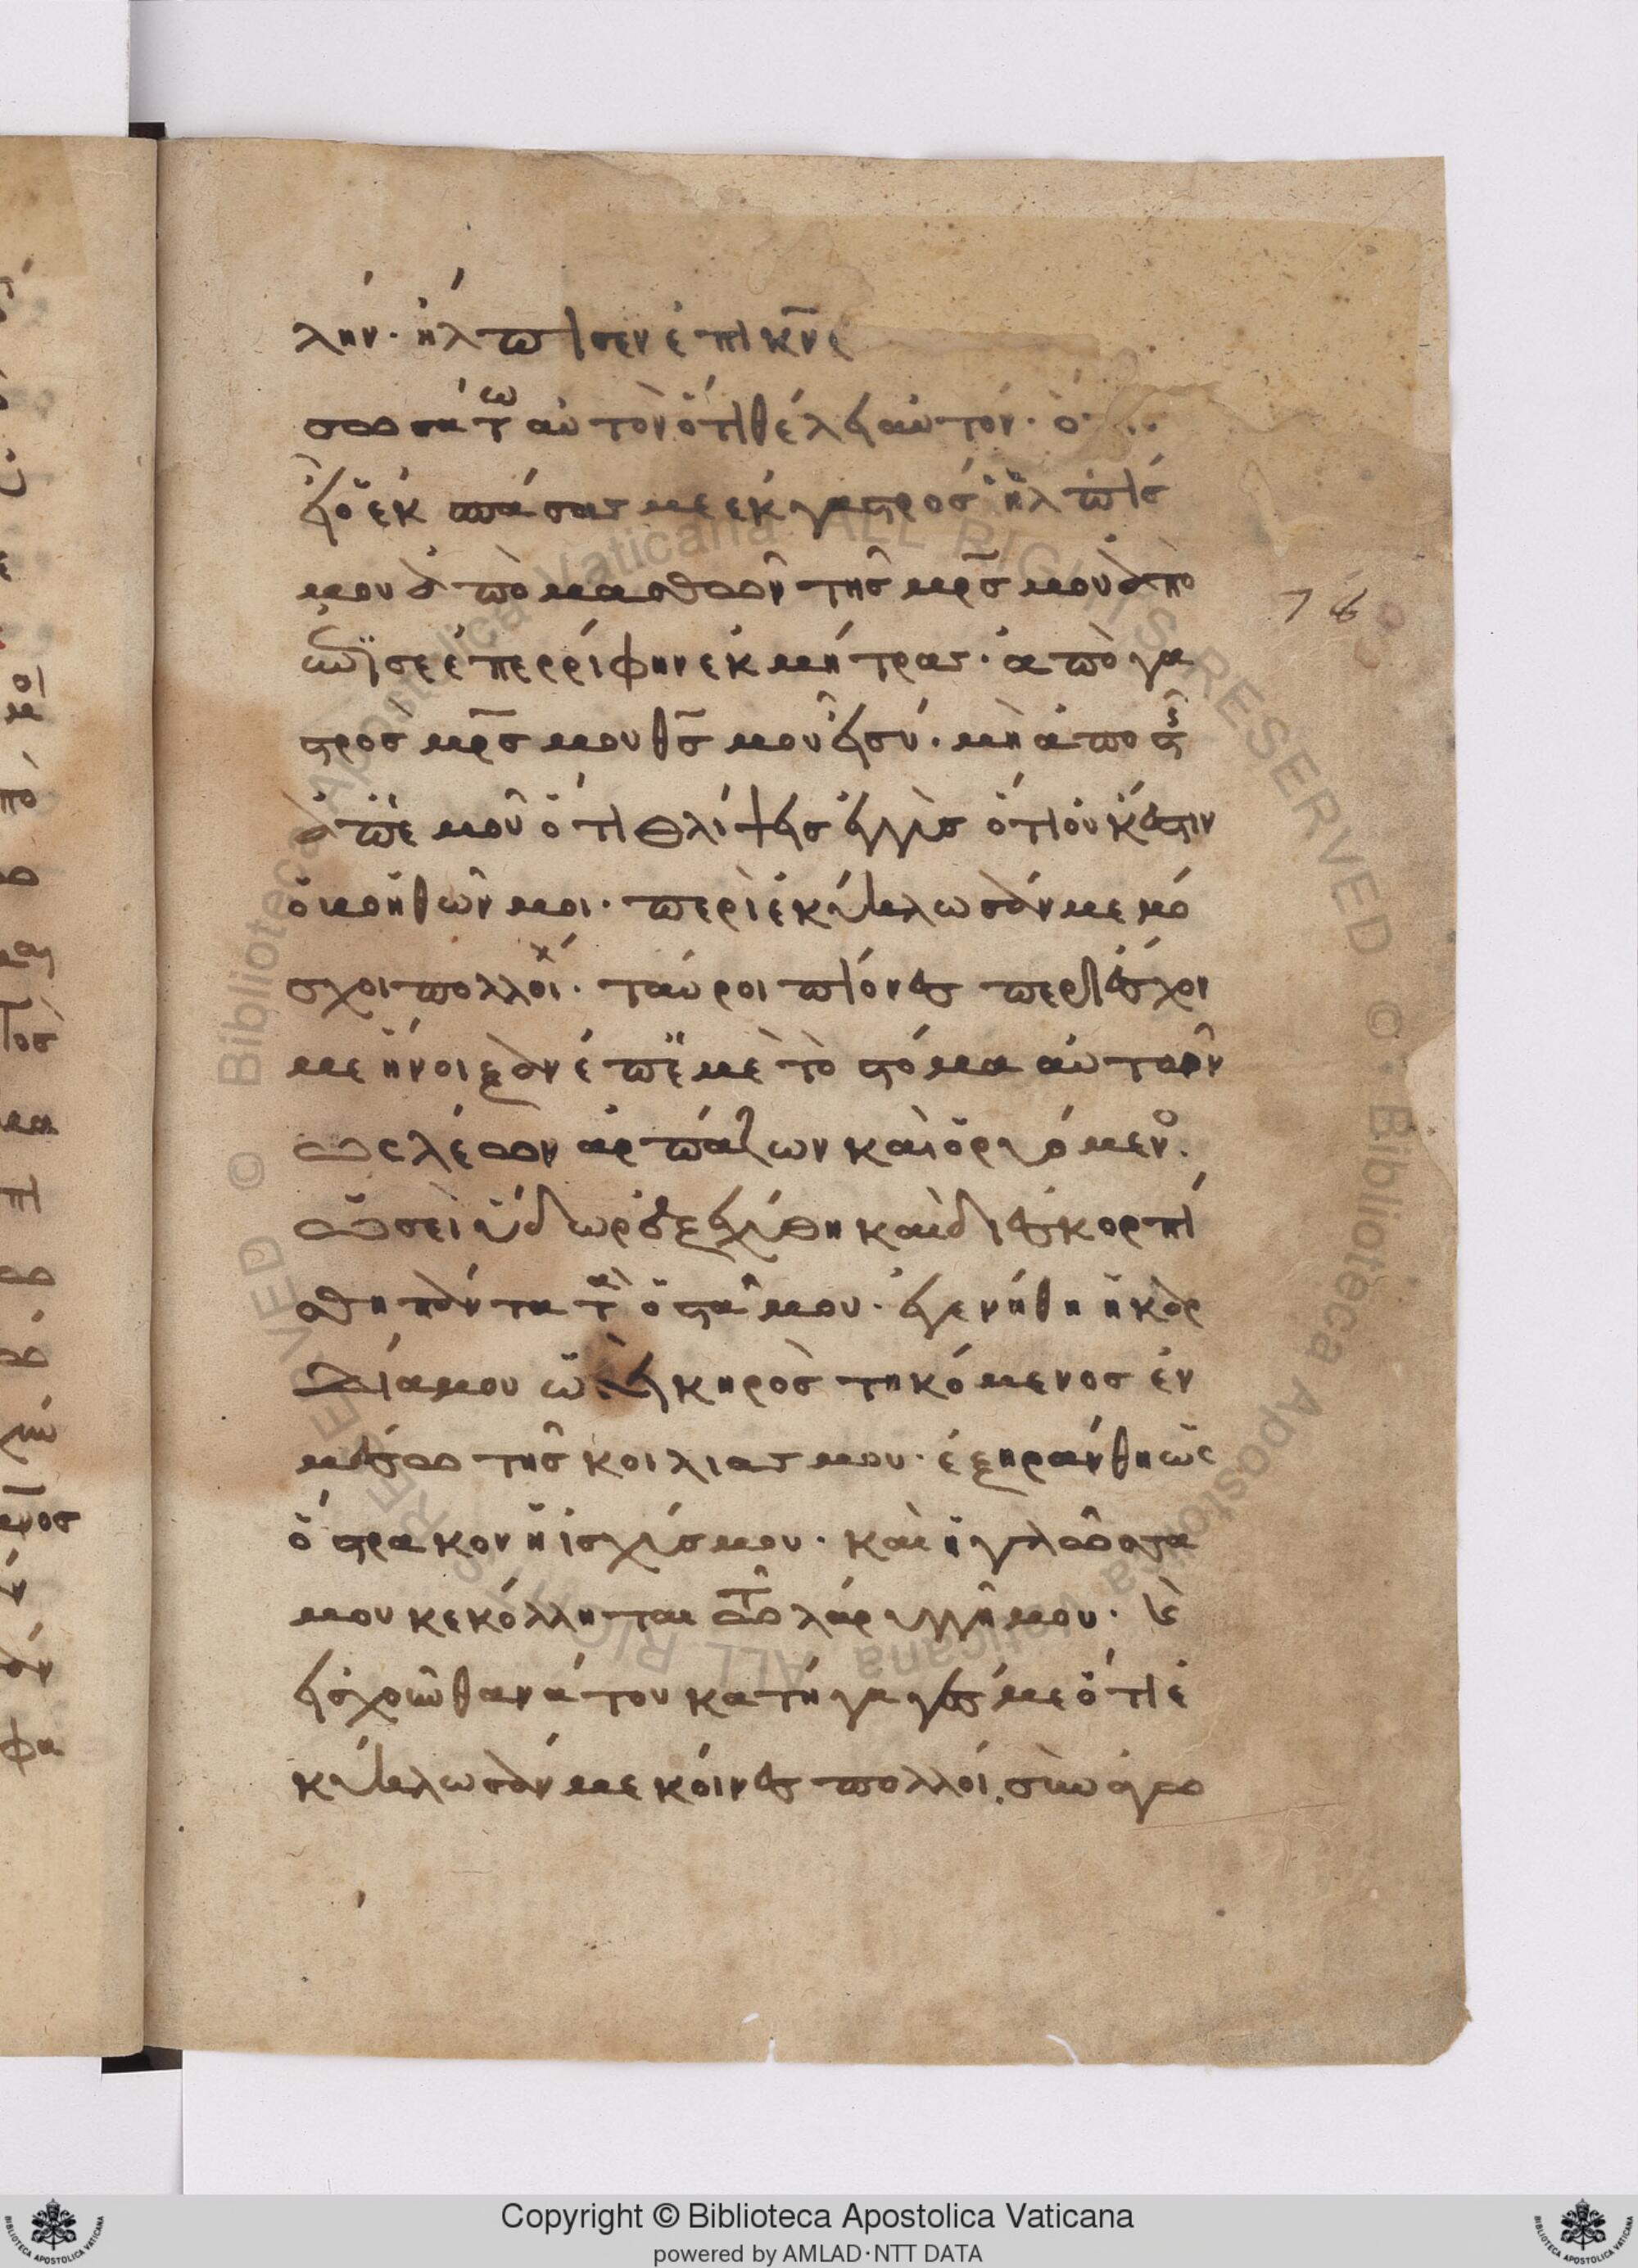 λην· ἤλπισεν ἐπὶ κν̄ ε
σωσάτω αὐτὸν ὅτι θέλει αὐτόν· ὁ
εἶ ὁ ἐκσπάσας με ἐκ γαστρός ἡ ἐλπίς
μου ἀπὸ μασθῶν τῆς μρ̄ς μου ἀπὸ
ἐπὶ σὲ ἐπερρίφην ἐκ μήτρας· ἀπὸ γα
στρὸς μρ̄ς μου θς̄ μου εἶ σύ· μὴ ἀποστῇ
ἀπ' ἐμοῦ ὅτι θλίψις ἐγγὺς ὅτι οὐκ ἔστιν
ὁ βοηθῶν μοι· περιεκύκλωσάν με μό
σχοι πολλοί· ταύροι πίονες περιέσχον
με ἤνοιξαν ἐπ' ἐμὲ τὸ στόμα αὐτῶν
ὡς λέων ἁρπάζων καὶ ὀρυόμενο·
ὡσεὶ ὕδωρ ἐξεχύθη καὶ διεσκορπί
σθη πάντα τὰ ὀστᾶ μου· ἐγενήθη ἡ καρ
δία μου ὡσεὶ κηρὸς τηκόμενος ἐν
μέσω τῆς κοιλιας μου· ἐξηράνθη ὡς
ὄστρακον ἡ ἰσχύς μου· καὶ ἡ γλῶσσα
μου κεκόλληται τῶ λάρυγγί μου· καὶ
εἰς χοῦν θανάτου κατήγαγές με ὅτι ἐ
κύκλωσάν με κύνες πολλοί, συναγω
76
Copyright © Biblioteca Apostolica Vaticana
powered by AMLAD·NTT DATA